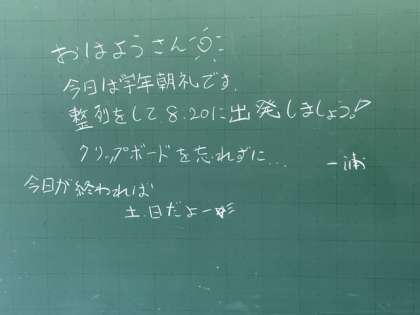 おはようさん
今日は学年朝礼です.
整列をして8.20に出発しましょう!
クリップボードを忘れずに...
一浦
今日が終われば
土.日だよー